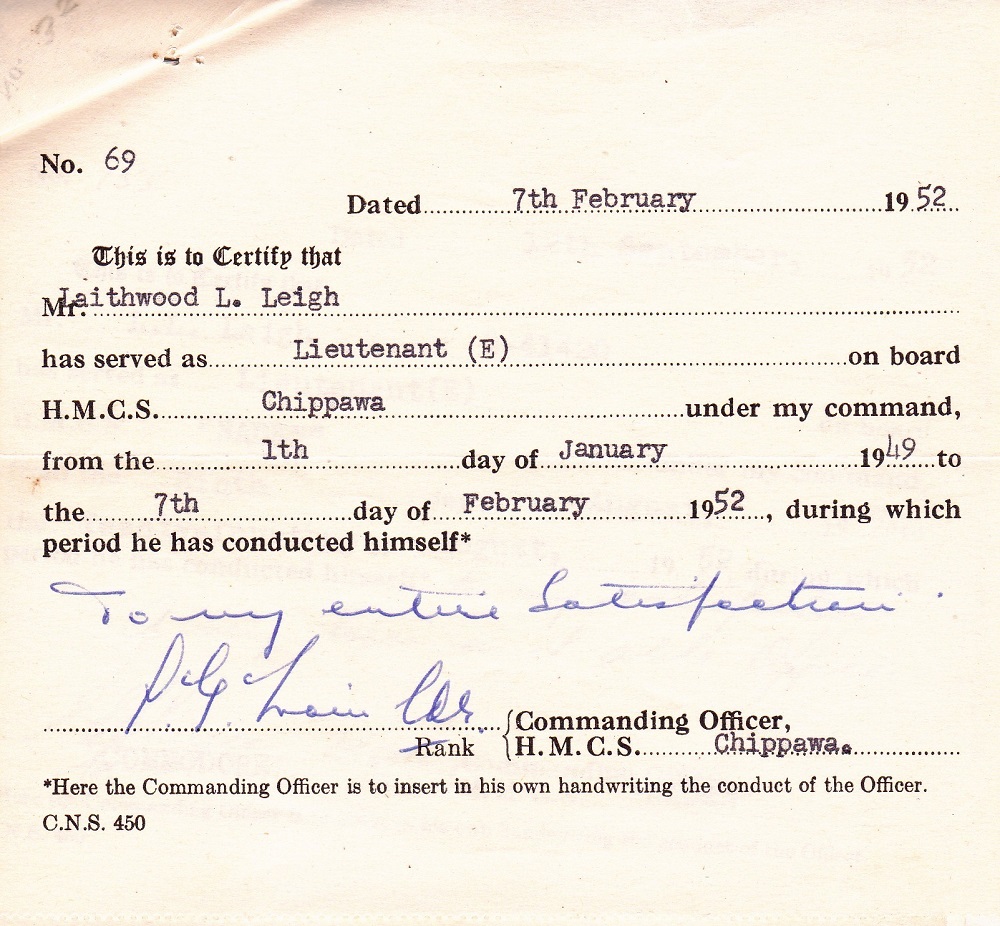 No. 69
Dated 7th February 1952
This is to Certify that
Mr. Laithwood L. Leigh
has served as Lieutenant (E) on board
H.M.C.S. Chippawa under my command,
from the 1th day of January 1949 to
the 7th day of February 1952, during which
period he has conducted himself*
To my entire Satisfaction.
Cdr.
Rank
Commanding Officer,
H.M.C.S. Chippawa.
*Here the Commanding Officer is to insert in his own handwriting the conduct of the Officer.
C.N.S. 450